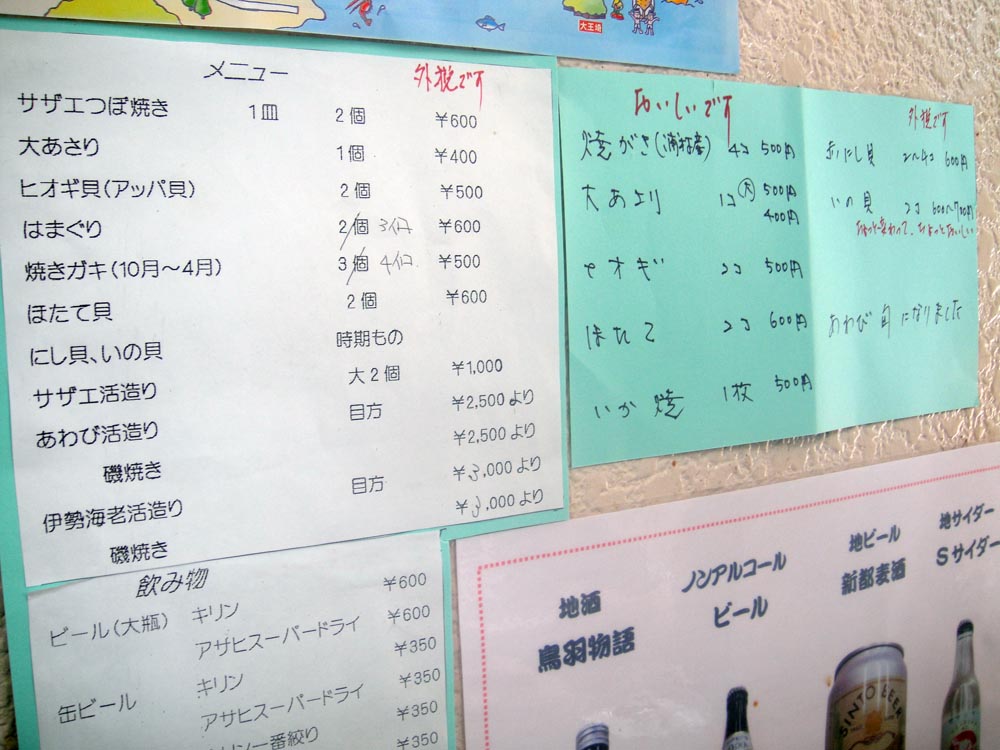 大王埼
メニュー 外税です
サザエつぼ焼き 1皿 2個 ¥600
大あさり 1個 ¥400
ヒオギ貝(アッパ貝) 2個 ¥500
はまぐり 2個 3個 ¥600
焼きガキ(10月～4月) 3個 4個 ¥500
ほたて貝 2個 ¥600
にし貝、いの貝 時期もの
サザエ活造り 大2個 ¥1,000
あわび活造り 目方 ¥2,500より
磯焼き ¥2,500より
伊勢海老活造り 目方 ¥3,000より
磯焼き ¥3,000より
飲み物
ビール(大瓶) キリン ¥600
アサヒスーパードライ ¥600
缶ビール キリン ¥350
アサヒスーパードライ ¥350
キリン一番絞り ¥350
¥350
おいしいです
焼がき(浦村産) 4コ 500円
大あさり 1コ 大 500円
400円
ヒオギ 2コ 500円
ほたて 2コ 600円
いか焼 1枚 500円
外税です
赤にし貝 2〜4コ 600円
いの貝 2コ 600〜700円
ちょっと変わって、ちょっとおいしい
あわび 旬になりました
地酒
鳥羽物語
ノンアルコール
ビール
地ビール
新都麦酒
地サイダー
Sサイダー
SINTO BEER